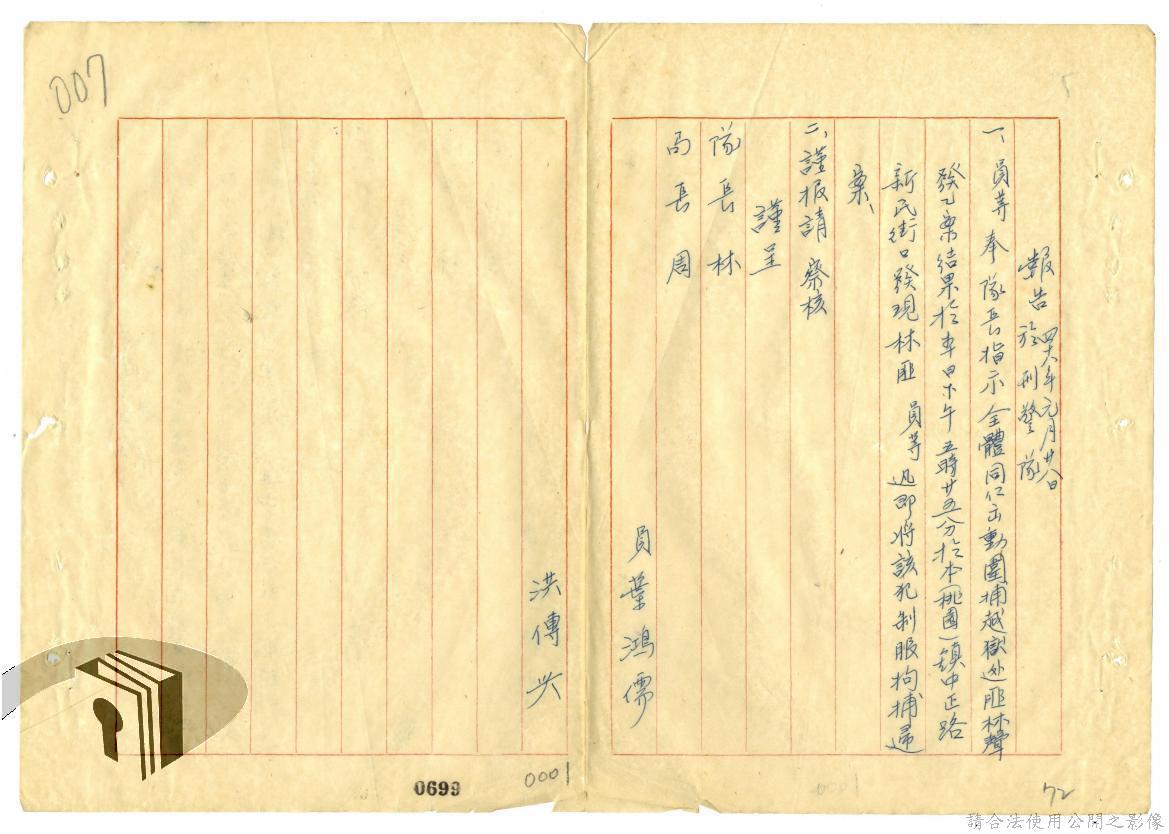 報告 於刑警隊 四十六年元月廿八日
一、員等奉隊長指示全體同仁出動圍捕越獄逃匪林聲
發乙案結果於本日下午五時廿五分於本(桃園)鎮中正路
新民街口發現林匪員等迅即將該犯制服拘捕歸
案、
二、謹报請察核
謹呈
隊長林
局長周
員葉鴻儒
洪傳兴
007
0699
0001
0001
72
請合法使用公開之影像